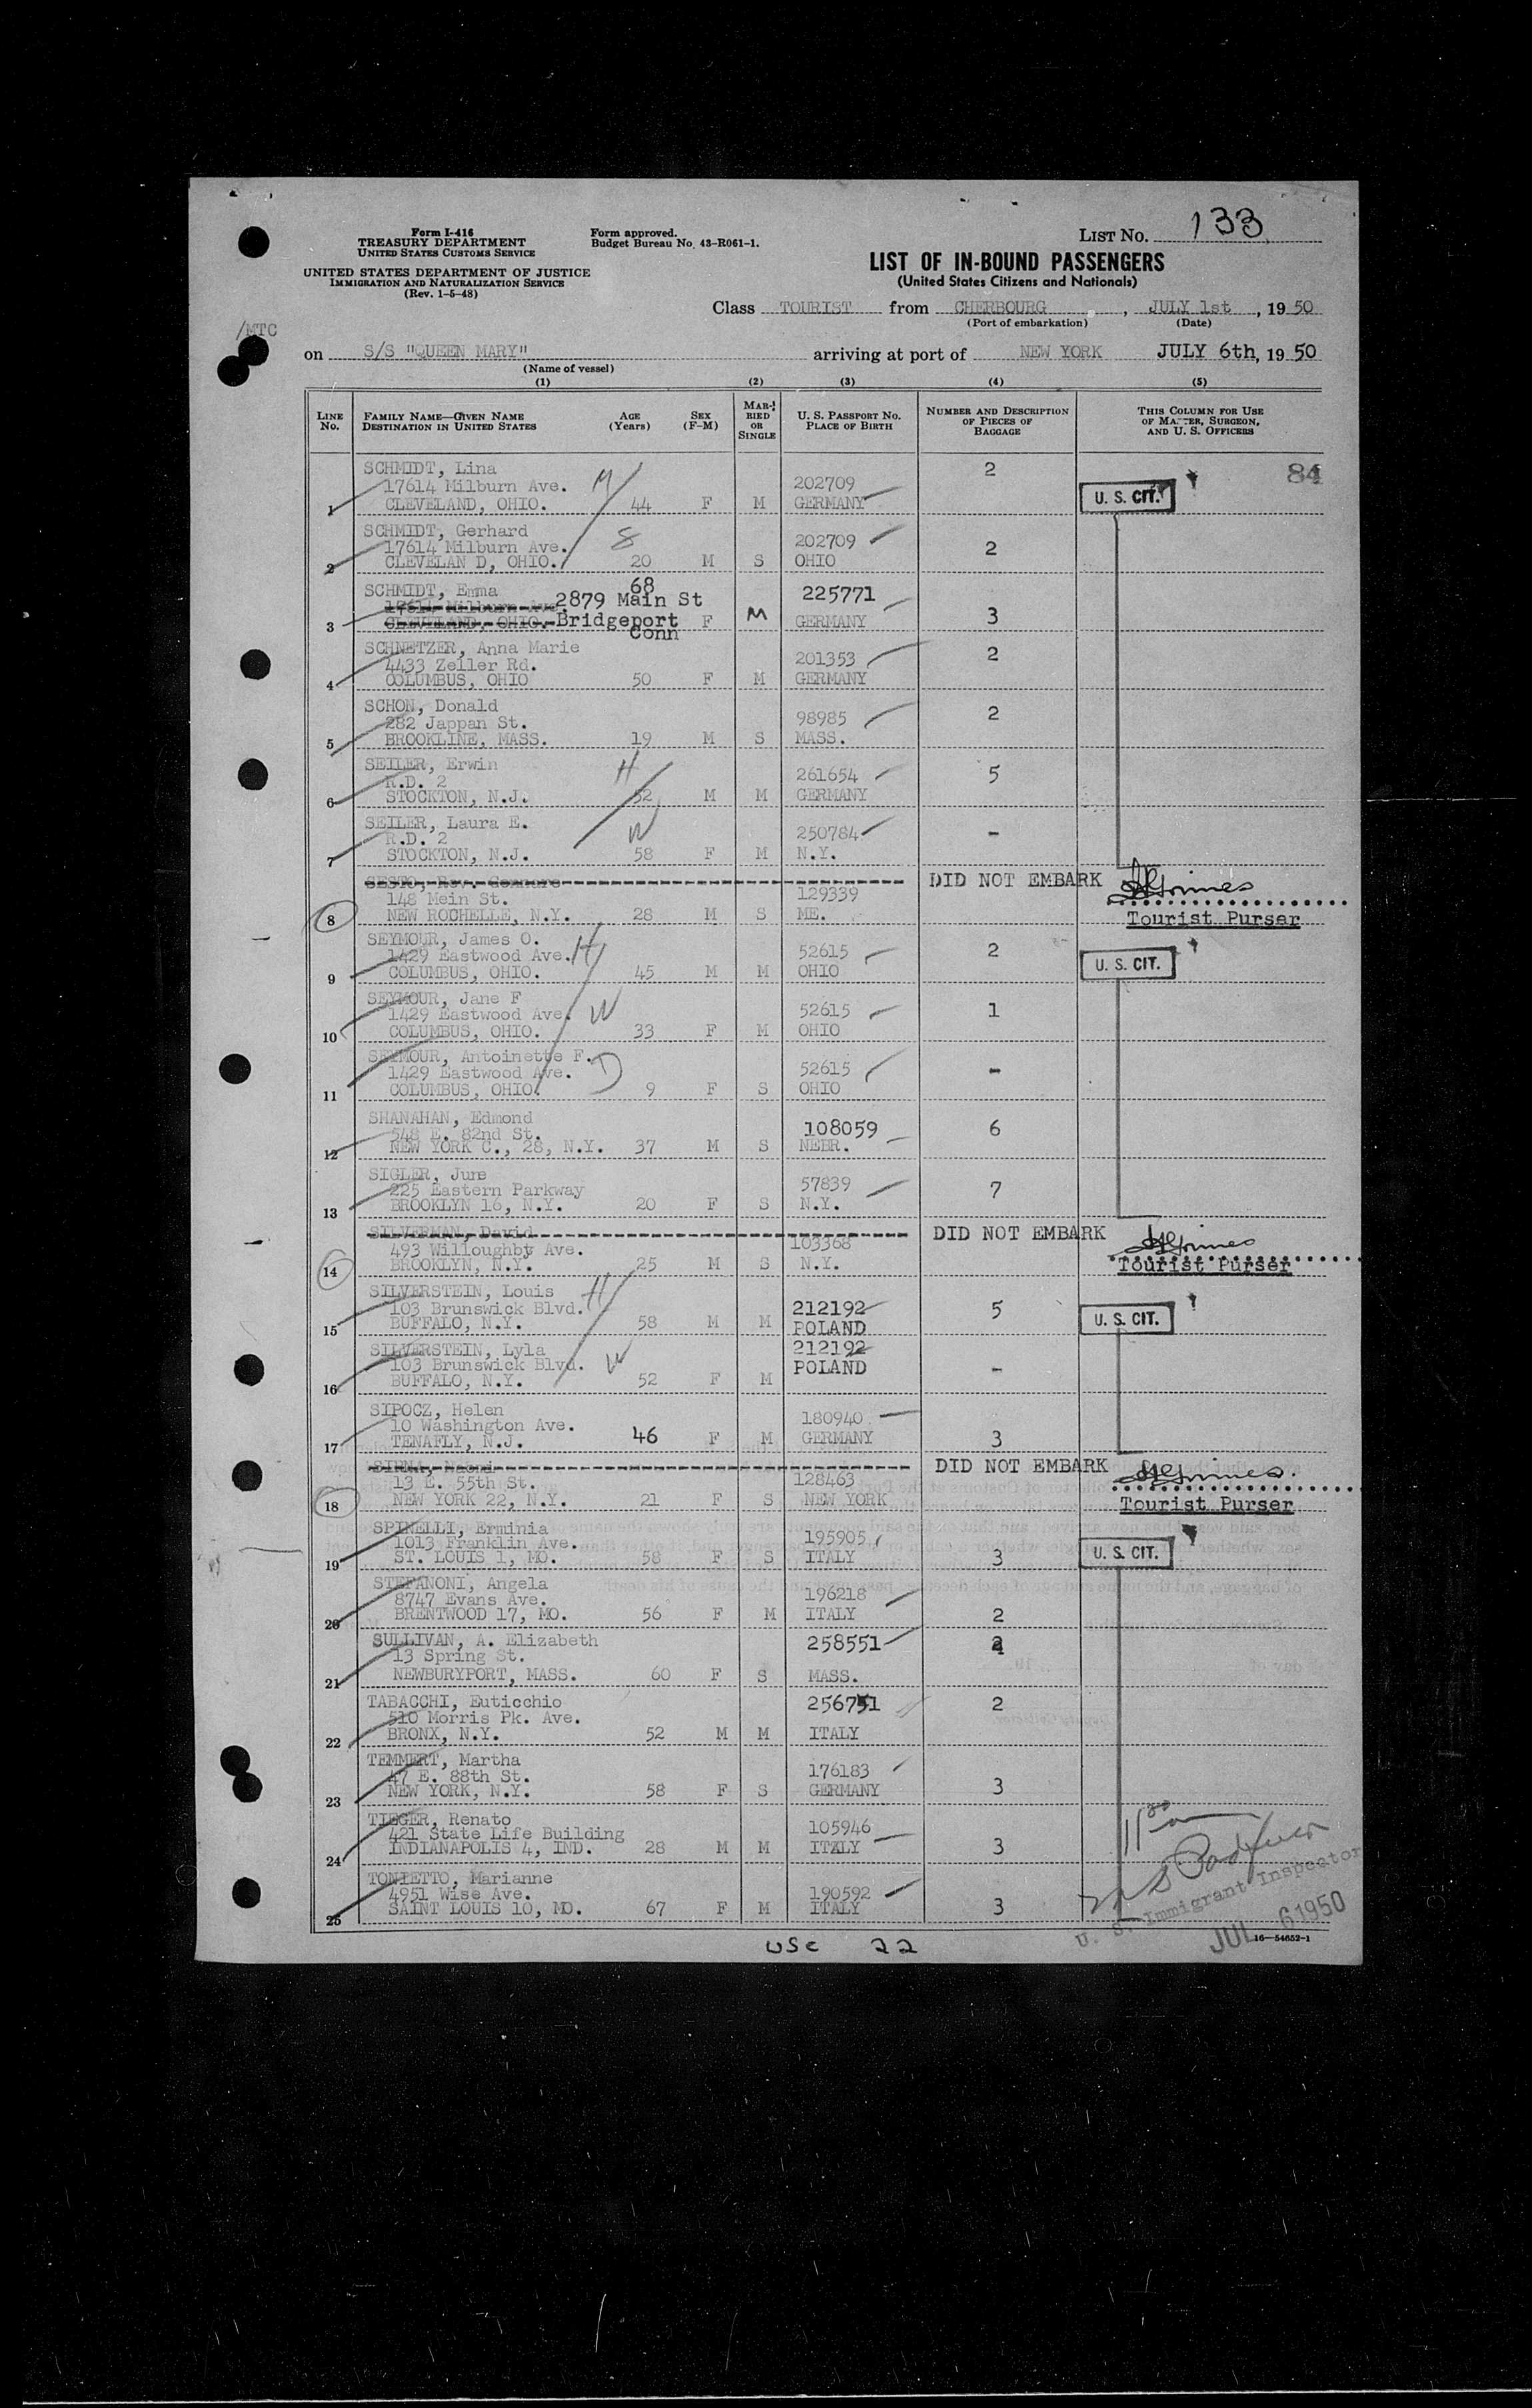 LIST No. 133
Form I-416
TREASURY DEPARTMENT
UNITED STATES CUSTOMS SERVICE
Form approved.
Budget Bureau No. 43-R061-1.
UNITED STATES DEPARTMENT OF JUSTICE
IMMIGRATION AND NATURALIZATION SERVICE
(Rev. 1-5-48)
LIST OF IN-BOUND PASSENGERS
(United States Citizens and Nationals)
Class TOURIST from CHERBOURG, JULY 1st, 1950
(Port of embarkation) (Date)
/MTC
on S/S "QUEEN MARY" arriving at port of NEW YORK JULY 6th, 1950
(Name of vessel)
(1) (2) (3) (4) (5)
LINE No. FAMILY NAME—GIVEN NAME DESTINATION IN UNITED STATES AGE (Years) SEX (F-M) MARRIED OR SINGLE U. S. PASSPORT No. PLACE OF BIRTH NUMBER AND DESCRIPTION OF PIECES OF BAGGAGE THIS COLUMN FOR USE OF MASTER, SURGEON, AND U. S. OFFICERS
SCHMIDT, Lina 2 84
17614 Milburn Ave. M 202709 U. S. CIT.
1 CLEVELAND, OHIO. 44 F M GERMANY
SCHMIDT, Gerhard
17614 Milburn Ave. S 202709 2
2 CLEVELAN D, OHIO. 20 M S OHIO
SCHMIDT, Emma 68 225771
17614 Milburn Ave. 2879 Main St
3 CLEVELAND, OHIO. Bridgeport F M GERMANY 3
Conn
SCHNETZER, Anna Marie 2
4433 Zeiler Rd. 201353
4 COLUMBUS, OHIO 50 F M GERMANY
SCHON, Donald 2
282 Jappan St. 98985
5 BROOKLINE, MASS. 19 M S MASS.
SEILER, Erwin H
R.D. 2 261654 5
6 STOCKTON, N.J. 52 M M GERMANY
SEILER, Laura E. W
R.D. 2 250784 -
7 STOCKTON, N.J. 58 F M N.Y.
SESTO, Rev. Gennaro DID NOT EMBARK
148 Mein St. 129339
8 NEW ROCHELLE, N.Y. 28 M S ME. Tourist Purser
SEYMOUR, James O. H
1429 Eastwood Ave. 52615 2 U. S. CIT.
9 COLUMBUS, OHIO. 45 M M OHIO
SEYMOUR, Jane F
1429 Eastwood Ave. W 52615 1
10 COLUMBUS, OHIO. 33 F M OHIO
SEYMOUR, Antoinette F.
1429 Eastwood Ave. D 52615 -
11 COLUMBUS, OHIO. 9 F S OHIO
SHANAHAN, Edmond
548 E. 82nd St. 108059 6
12 NEW YORK C., 28, N.Y. 37 M S NEBR.
SIGLER, Jure
225 Eastern Parkway 57839 7
13 BROOKLYN 16, N.Y. 20 F S N.Y.
SILVERMAN, David DID NOT EMBARK
493 Willoughby Ave. 103368
14 BROOKLYN, N.Y. 25 M S N.Y. Tourist Purser
SILVERSTEIN, Louis H
103 Brunswick Blvd. 212192 5 U. S. CIT.
15 BUFFALO, N.Y. 58 M M POLAND
SILVERSTEIN, Lyla 212192
103 Brunswick Blvd. W POLAND -
16 BUFFALO, N.Y. 52 F M
SIPOCZ, Helen
10 Washington Ave. 180940
17 TENAFLY, N.J. 46 F M GERMANY 3
SIRNA, Naomi DID NOT EMBARK
13 E. 55th St. 128463
18 NEW YORK 22, N.Y. 21 F S NEW YORK Tourist Purser
SPINELLI, Erminia
1013 Franklin Ave. 195905 U. S. CIT.
19 ST. LOUIS 1, MO. 58 F S ITALY 3
STEFANONI, Angela
8747 Evans Ave. 196218
20 BRENTWOOD 17, MO. 56 F M ITALY 2
SULLIVAN, A. Elizabeth 258551
13 Spring St.
21 NEWBURYPORT, MASS. 60 F S MASS.
TABACCHI, Euticchio 256751 2
510 Morris Pk. Ave.
22 BRONX, N.Y. 52 M M ITALY
TEMMERT, Martha
47 E. 88th St. 176183
23 NEW YORK, N.Y. 58 F S GERMANY 3
TIEGER, Renato
421 State Life Building 105946
24 INDIANAPOLIS 4, IND. 28 M M ITALY 3
TONIETTO, Marianne
4951 Wise Ave. 190592
25 SAINT LOUIS 10, MO. 67 F M ITALY 3
U. S. Immigrant Inspector
JUL 6 1950
16—54652-1
USC 22